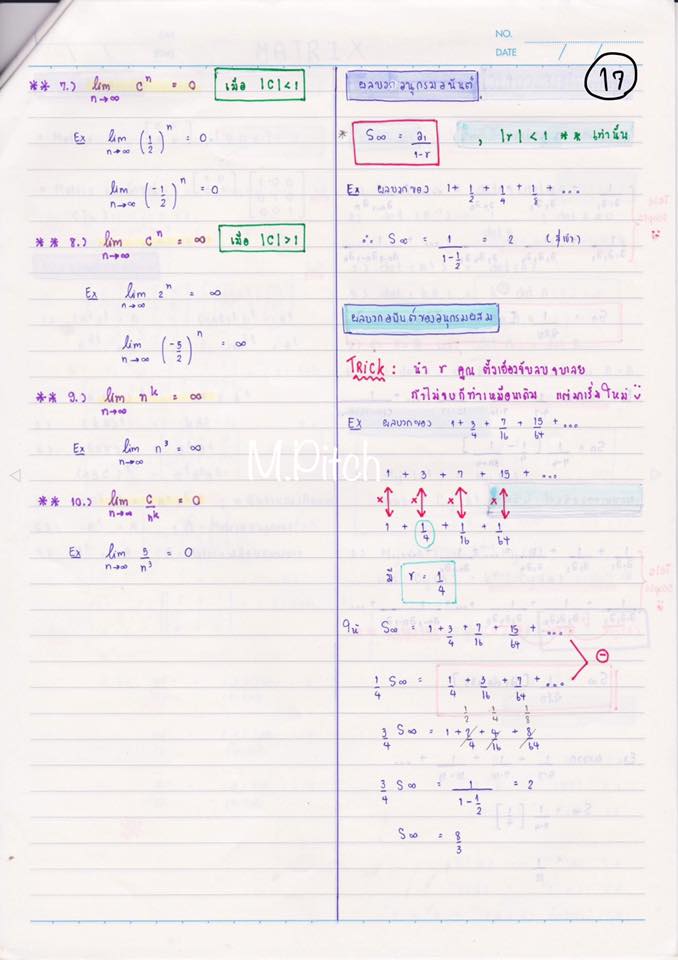 NO.
DATE / /
17
** 7.) lim n→∞ cⁿ = 0 เมื่อ |C|<1
Ex lim n→∞ (1/2)ⁿ = 0
lim n→∞ (-1/2)ⁿ = 0
** 8.) lim n→∞ cⁿ = ∞ เมื่อ |C|>1
Ex lim n→∞ 2ⁿ = ∞
lim n→∞ (-5/2)ⁿ = ∞
** 9.) lim n→∞ nᵏ = ∞
Ex lim n→∞ n³ = ∞
** 10.) lim n→∞ C/nᵏ = 0
Ex lim n→∞ 5/n³ = 0
ผลบวกอนุกรมอนันต์
* S∞ = a₁/(1-r) , |r| < 1 ** เท่านั้น
Ex ผลบวกของ 1 + 1/2 + 1/4 + 1/8 + ...
∴ S∞ = 1/(1-1/2) = 2
ผลบวกอนันต์ของอนุกรมผสม
TRick : นำ r คูณ ตัวเองจับลบ จบเลย
ถ้าไม่จบก็ทำเหมือนเดิม แต่มาเริ่มใหม่
Ex ผลบวกของ 1 + 3/4 + 7/16 + 15/64 + ...
1 + 3 + 7 + 15 + ...
× × × ×
1 + 1/4 + 1/16 + 1/64
มี r = 1/4
ให้ S∞ = 1 + 3/4 + 7/16 + 15/64 + ...
⊖
1/4 S∞ = 1/4 + 3/16 + 7/64 + ...
1/2 1/4 1/8
3/4 S∞ = 1 + 2/4 + 4/16 + 8/64
3/4 S∞ = 1/(1-1/2) = 2
S∞ = 8/3
M.Pitch